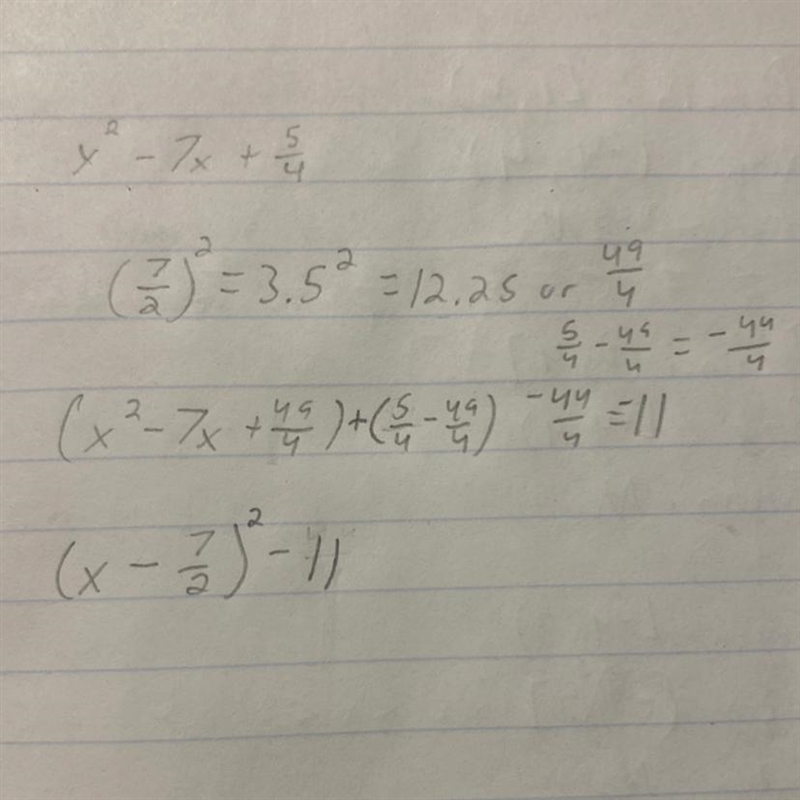 x² - 7x + 5/4
(7/2)² = 3.5² = 12.25 or 49/4
5/4 - 49/4 = -44/4
(x² - 7x + 49/4) + (5/4 - 49/4) -44/4 = 11
(x - 7/2)² - 11